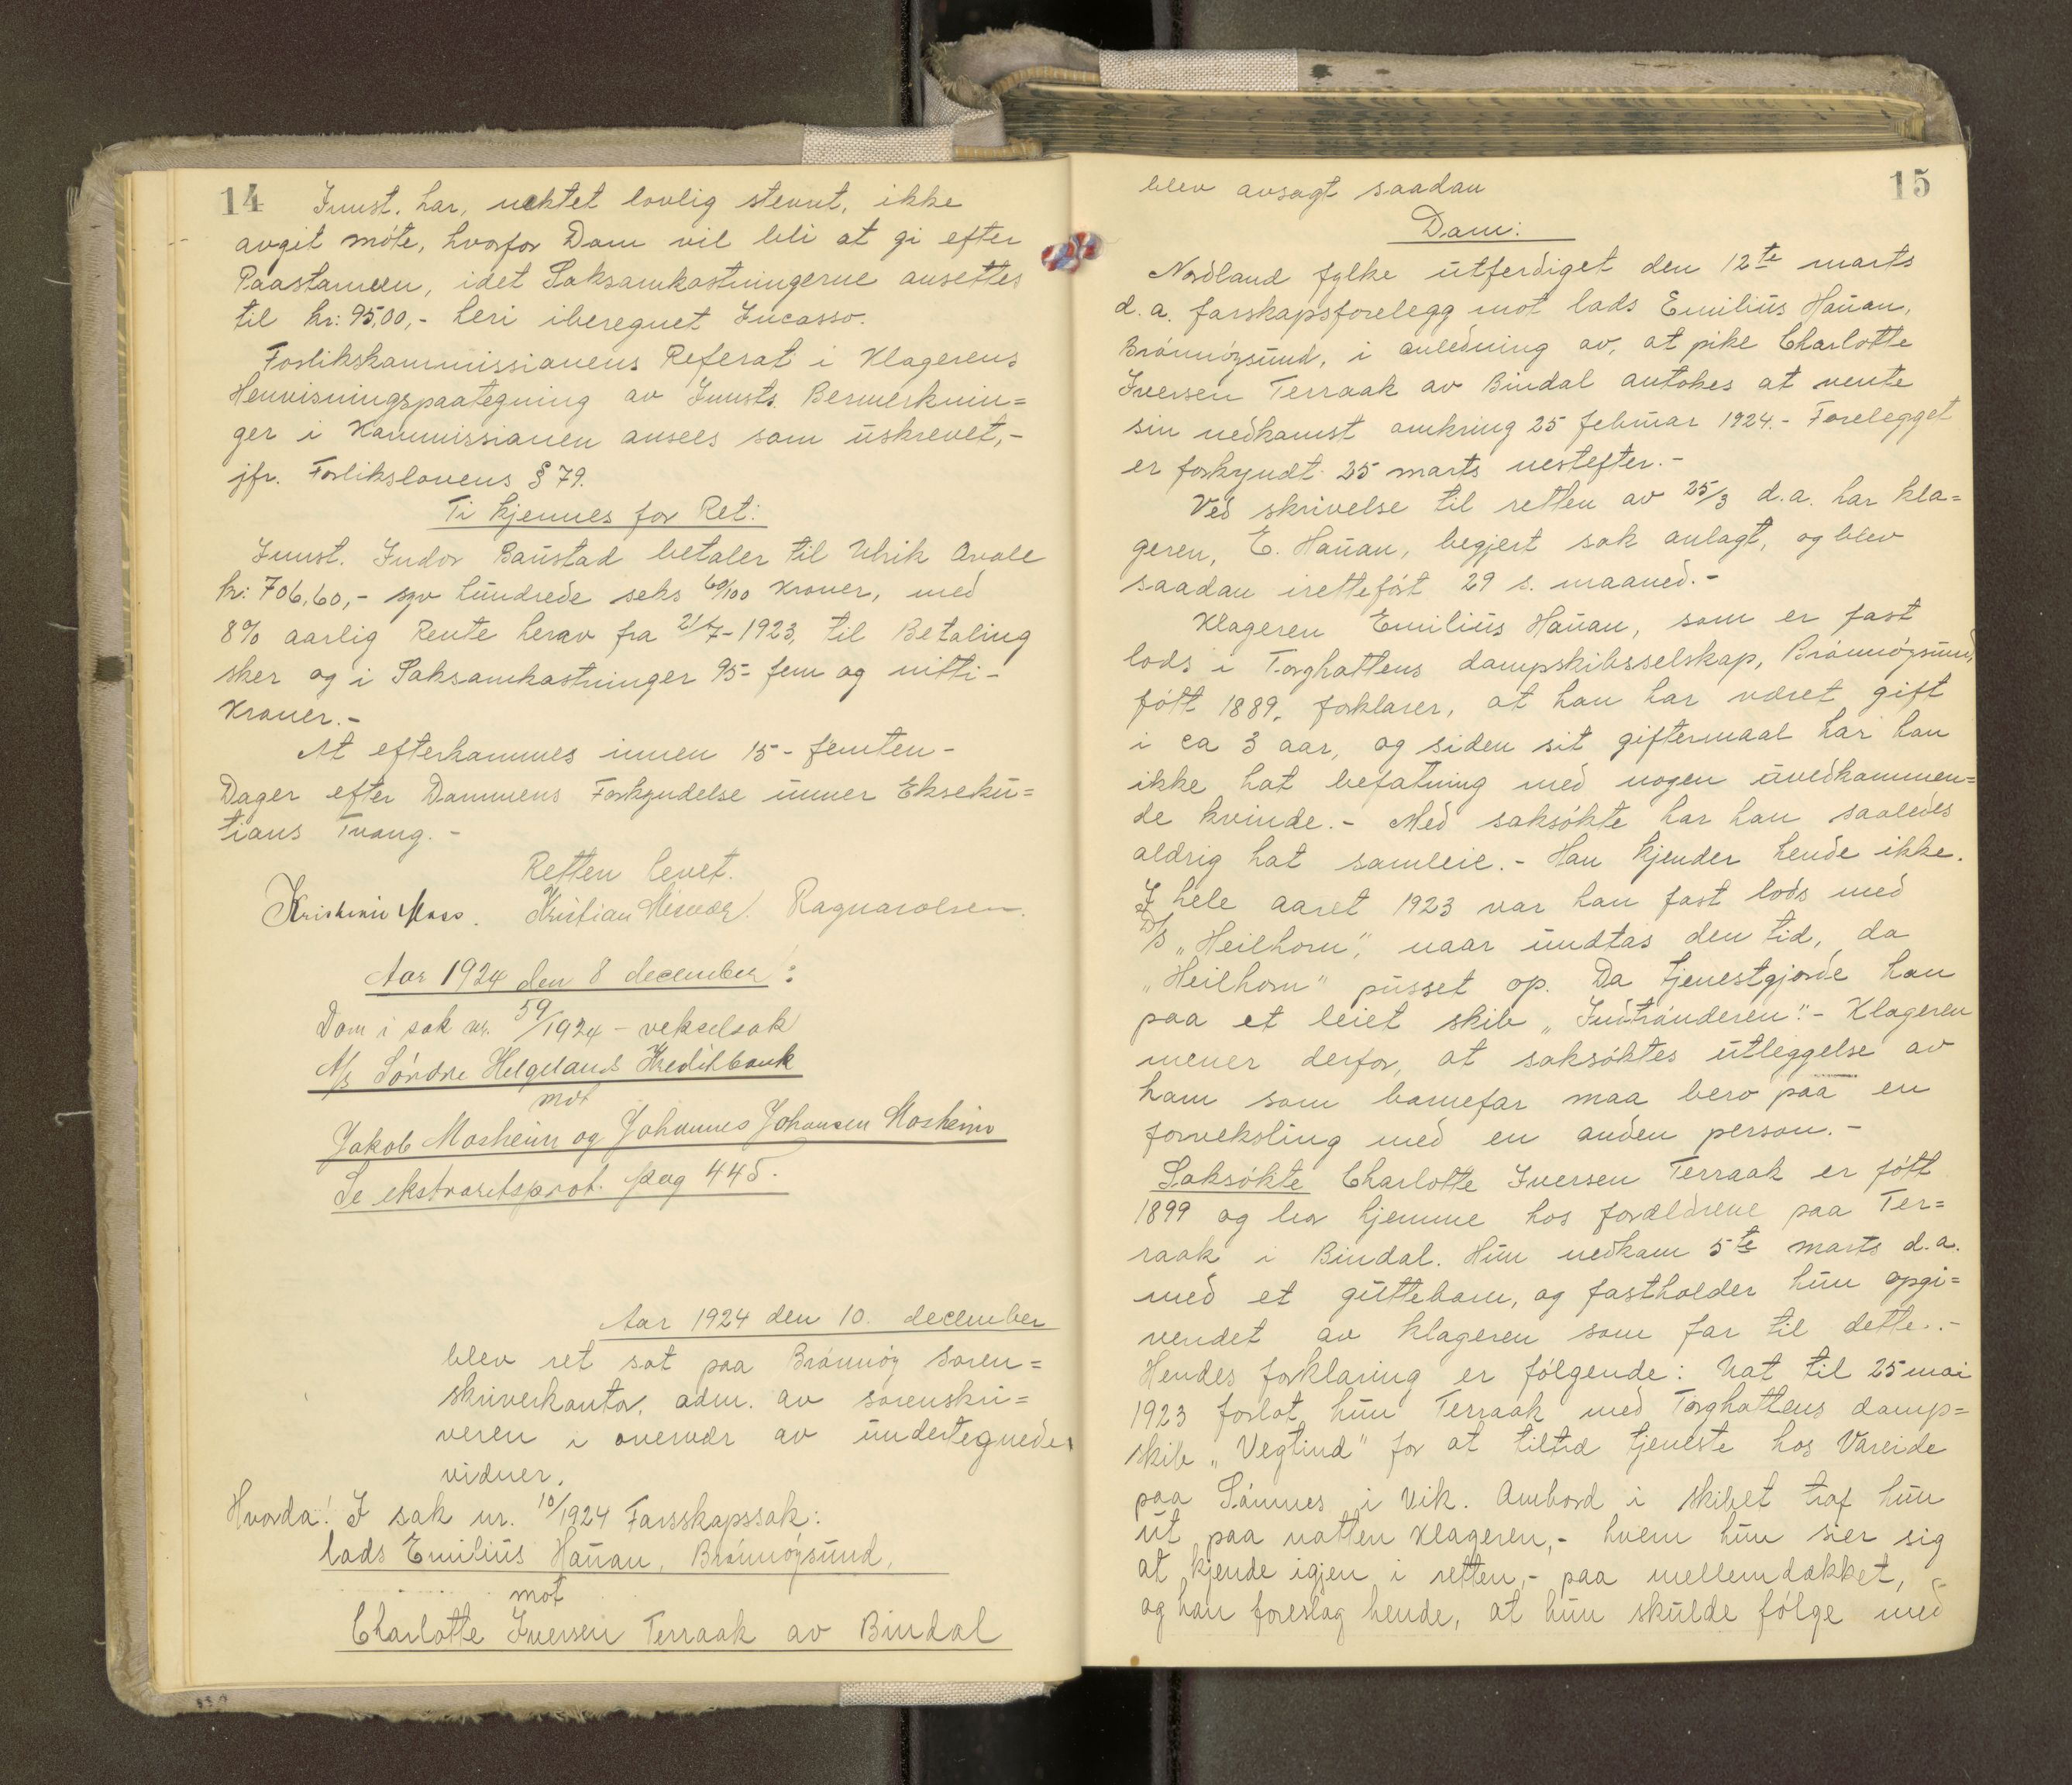 14
Innst. har, uaktet lovlig stevnt, ikke
avgit møte, hvorfor Dom vil bli at gi efter
Paastanden, idet Saksomkostningerne ansettes
til kr: 95,00,- heri iberegnet Incasso.
Forlikskommissionens Referat i Klagerens
Henvisningspaategning av Innsts. Bemerknin=
ger i Kommissionen ansees som uskrevet,-
jfr. Forlikslovens § 79.
Ti kjennes for Ret:
Innst. Indor Baustad betaler til Ulrik Arole
kr: 706,60,- syv hundrede seks 60/100 Kroner, med
8% aarlig Rente herav fra 21/7-1923, til Betaling
sker og i Saksomkostninger 95- fem og nitti-
Kroner.-
At efterkommes innen 15- femten-
Dager efter Dommens Forkyndelse unner Ekseku=
tions Tvang.-
Retten hevet.
Kristian Moss. Kristian Risevær. Ragnarolsen.
Aar 1924 den 8 december:
Dom i sak nr. 59/1924 - vekselsak
A/S Søndre Helgelands Kreditbank
mot
Jakob Mosheim og Johannes Johansen Mosheim
Se ekstraretsprot. pag 445.
Aar 1924 den 10. december
blev ret sat paa Brønnøy soren=
skriverkontor, adm. av sorenskri=
veren i overvær av undertegnede
vidner.
Hvorda! I sak nr. 10/1924 Farsskapssak:
lods Emilius Hauan, Brønnøysund,
mot
Charlotte Iversen Terraak av Bindal
15
blev avsagt saadan
Dom:
Nordland fylke utferdiget den 12te marts
d.a. farskapsforelegg mot lods Emilius Hauan,
Brønnøysund, i anledning av, at pike Charlotte
Iversen Terraak av Bindal antokes at vente
sin nedkomst omkring 25 februar 1924.- Forelegget
er forkyndt 25 marts nestefter.-
Ved skrivelse til retten av 25/3 d.a. har kla=
geren, E. Hauan, begjert sak anlagt, og blev
saadan iretteført 29 s. maaned.-
Klageren Emilius Hauan, som er fast
lods i Torghattens dampskibsselskap, Brønnøysund,
født 1889, forklarer, at han har været gift
i ca 3 aar, og siden sit giftermaal har han
ikke hat befatning med nogen uvedkommen=
de kvinde.- Med saksøkte har han saaledes
aldrig hat samleie.- Han kjender hende ikke.
I hele aaret 1923 var han fast lods med
D/S „Heilhorn", naar undtas den tid, da
„Heilhorn" pusset op. Da tjenestgjorde han
paa et leiet skib „Indtrønderen".- Klageren
mener derfor, at saksøktes utleggelse av
ham som barnefar maa bero paa en
forveksling med en anden person.-
Saksøkte Charlotte Iversen Terraak er født
1899 og bor hjemme hos forældrene paa Ter=
raak i Bindal. Hun nedkom 5te marts d.a.
med et guttebarn, og fastholder hun opgi=
vendet av klageren som far til dette.-
Hendes forklaring er følgende: Nat til 25 mai
1923 forlot hun Terraak med Torghattens damp=
skib „Vegtind" for at tiltræ tjeneste hos Vareide
paa Sømnes i Vik. Ombord i skibet traf hun
ut paa natten klageren,- hvem hun sier sig
at kjende igjen i retten,- paa mellemdækket,
og han foreslog hende, at hun skulde følge med